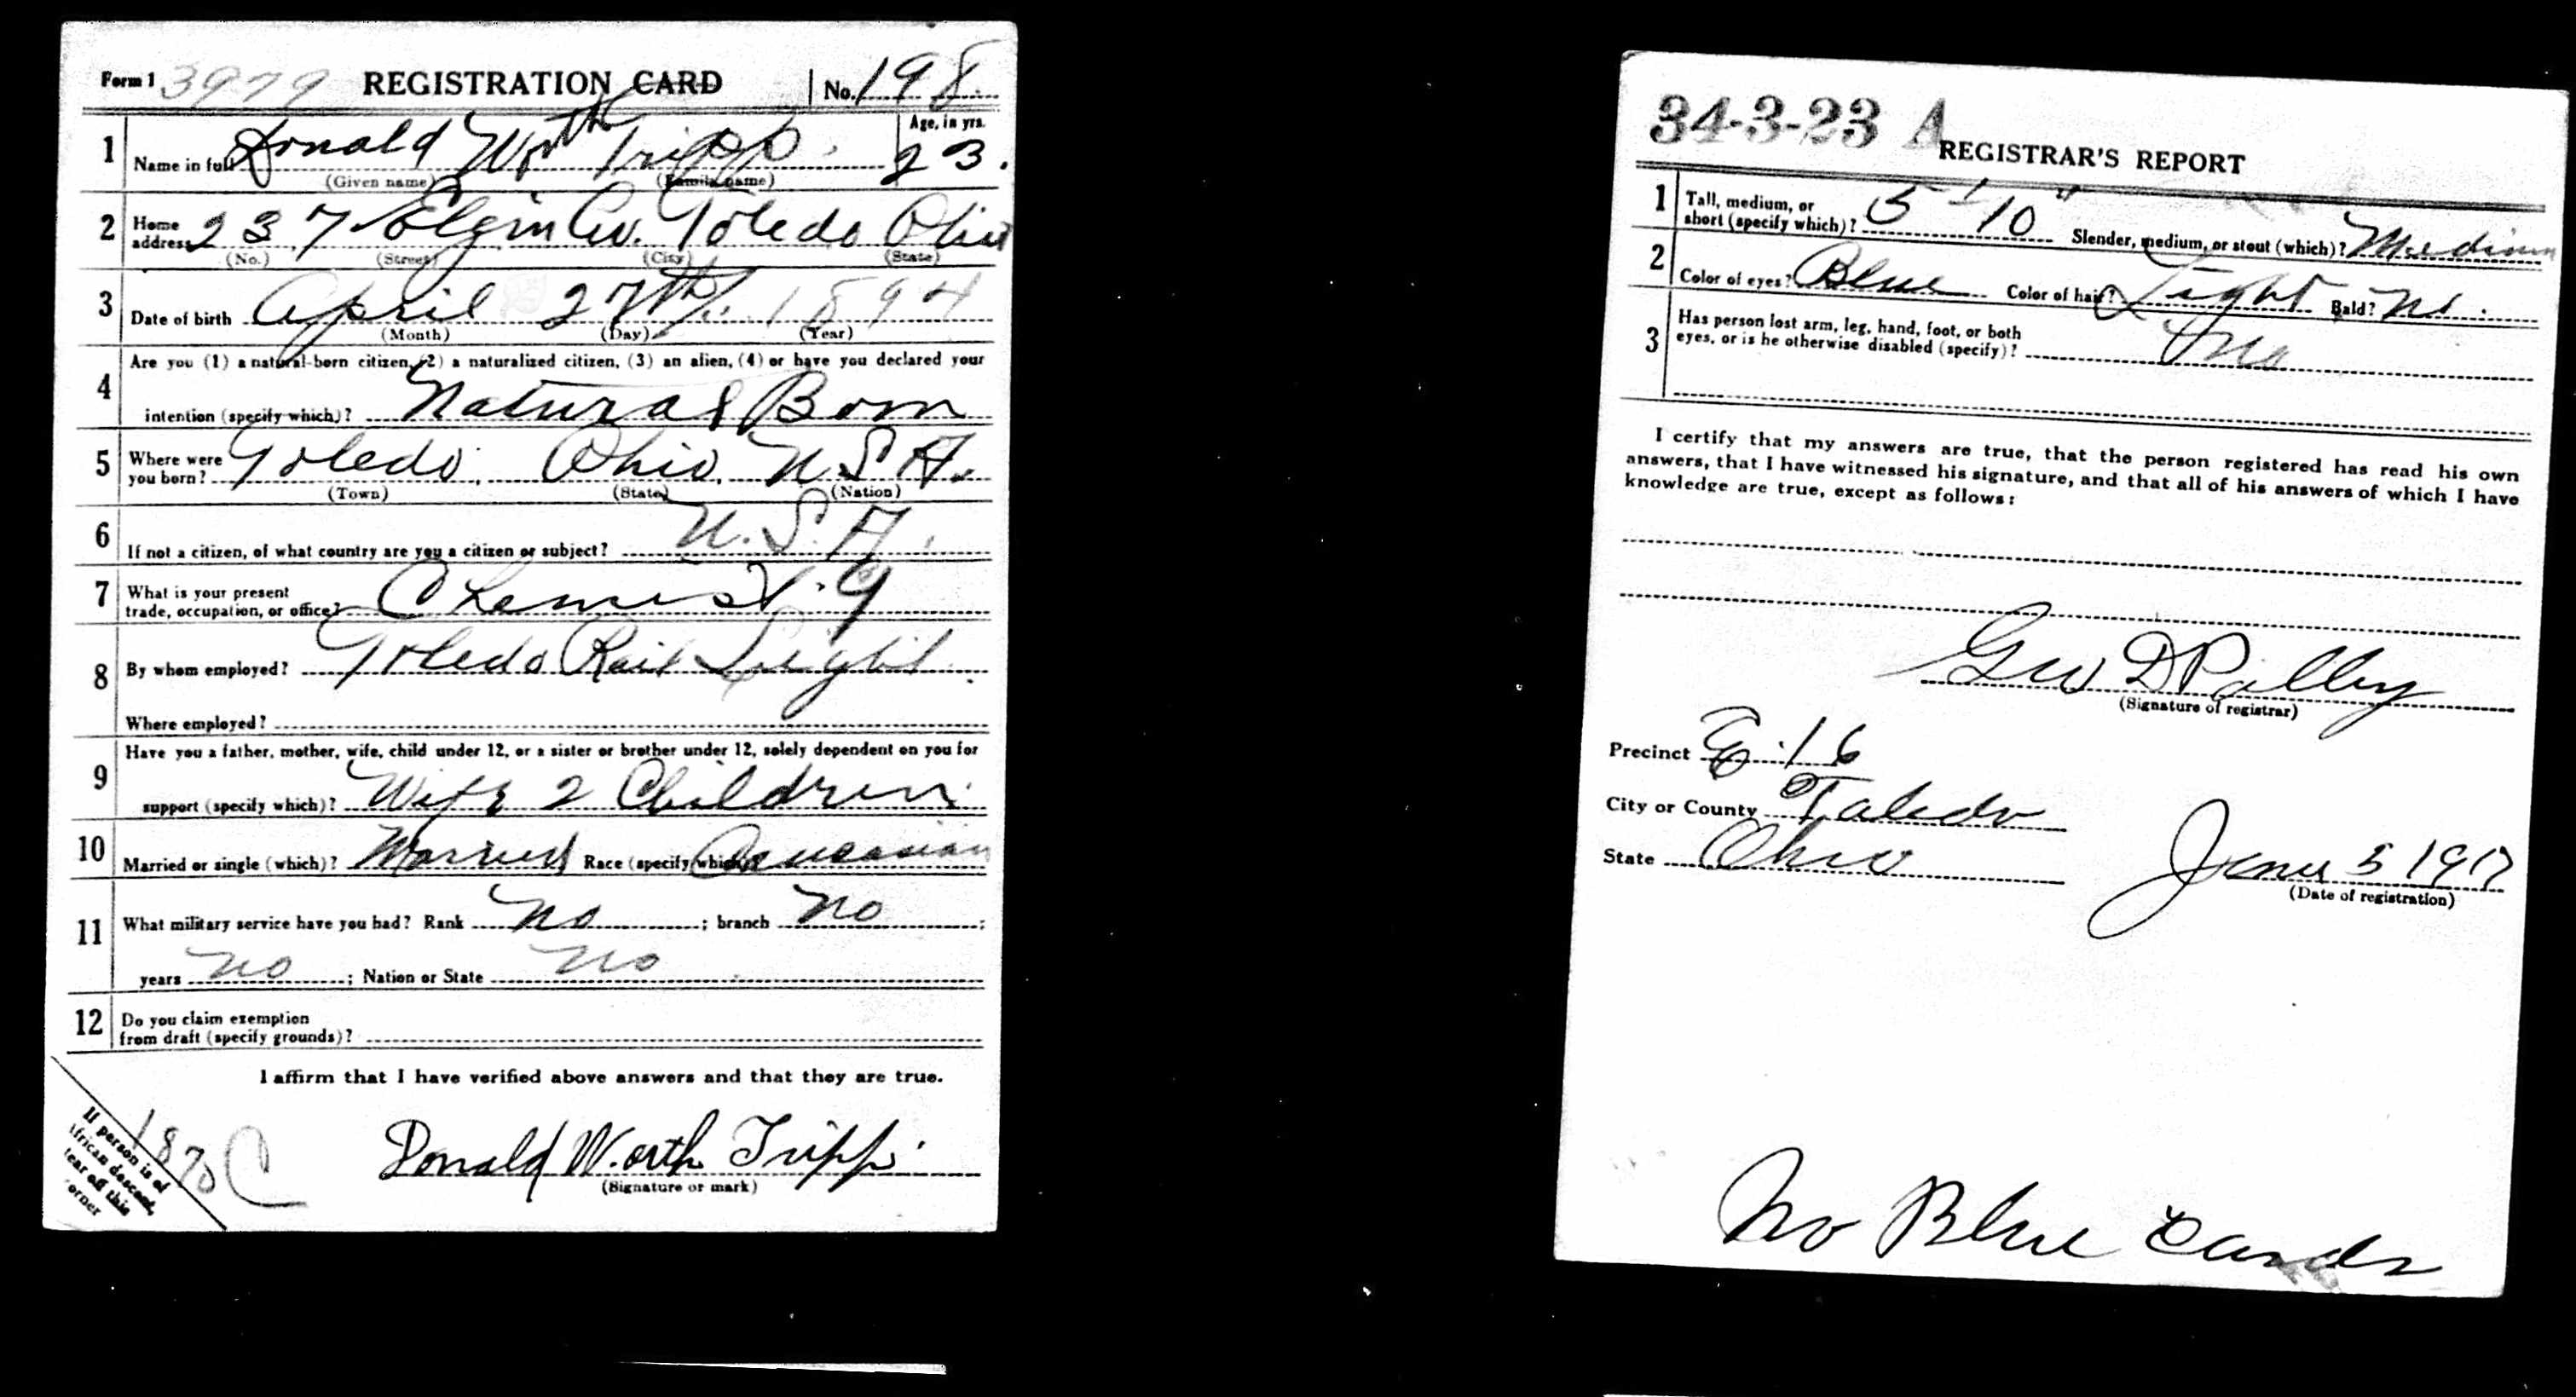 Form 1 3979 REGISTRATION CARD No. 198
1 Name in full Donald Worth Tripp. Age, in yrs. 23.
(Given name) (Family name)
2 Home address 237 Elgin Av. Toledo Ohio
(No.) (Street) (City) (State)
3 Date of birth April 27th. 1894
(Month) (Day) (Year)
4 Are you (1) a natural-born citizen, (2) a naturalized citizen, (3) an alien, (4) or have you declared your
intention (specify which)? Natural Born
5 Where were you born? Toledo, Ohio, U.S.A.
(Town) (State) (Nation)
6 If not a citizen, of what country are you a citizen or subject? U.S.A.
7 What is your present
trade, occupation, or office? Chemist. 9
8 By whom employed? Toledo Rail Light
Where employed?
9 Have you a father, mother, wife, child under 12, or a sister or brother under 12, solely dependent on you for
support (specify which)? Wife 2 Children
10 Married or single (which)? Married Race (specify which)? Caucasian
11 What military service have you had? Rank no ; branch no ;
years no ; Nation or State no
12 Do you claim exemption
from draft (specify grounds)?
I affirm that I have verified above answers and that they are true.
Donald Worth Tripp.
(Signature or mark)
If person is of
African descent,
tear off this
corner
1870 C
34-3-23 A
REGISTRAR'S REPORT
1 Tall, medium, or
short (specify which)? 5' 10" Slender, medium, or stout (which)? Medium
2 Color of eyes? Blue Color of hair? Light Bald? No.
3 Has person lost arm, leg, hand, foot, or both
eyes, or is he otherwise disabled (specify)? No
I certify that my answers are true, that the person registered has read his own
answers, that I have witnessed his signature, and that all of his answers of which I have
knowledge are true, except as follows:
Geo D
(Signature of registrar)
Precinct E. 16
City or County Toledo
State Ohio June 5 1917
(Date of registration)
No Blue Cards